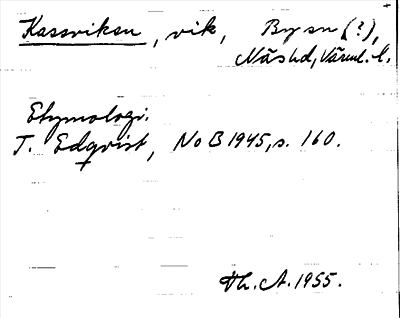 Kassviken, vik, By sn (?),
Näs hd, Värml. l.
Etymologi.
T. Edqvist, NoB 1945, s. 160.
Th. A. 1955.